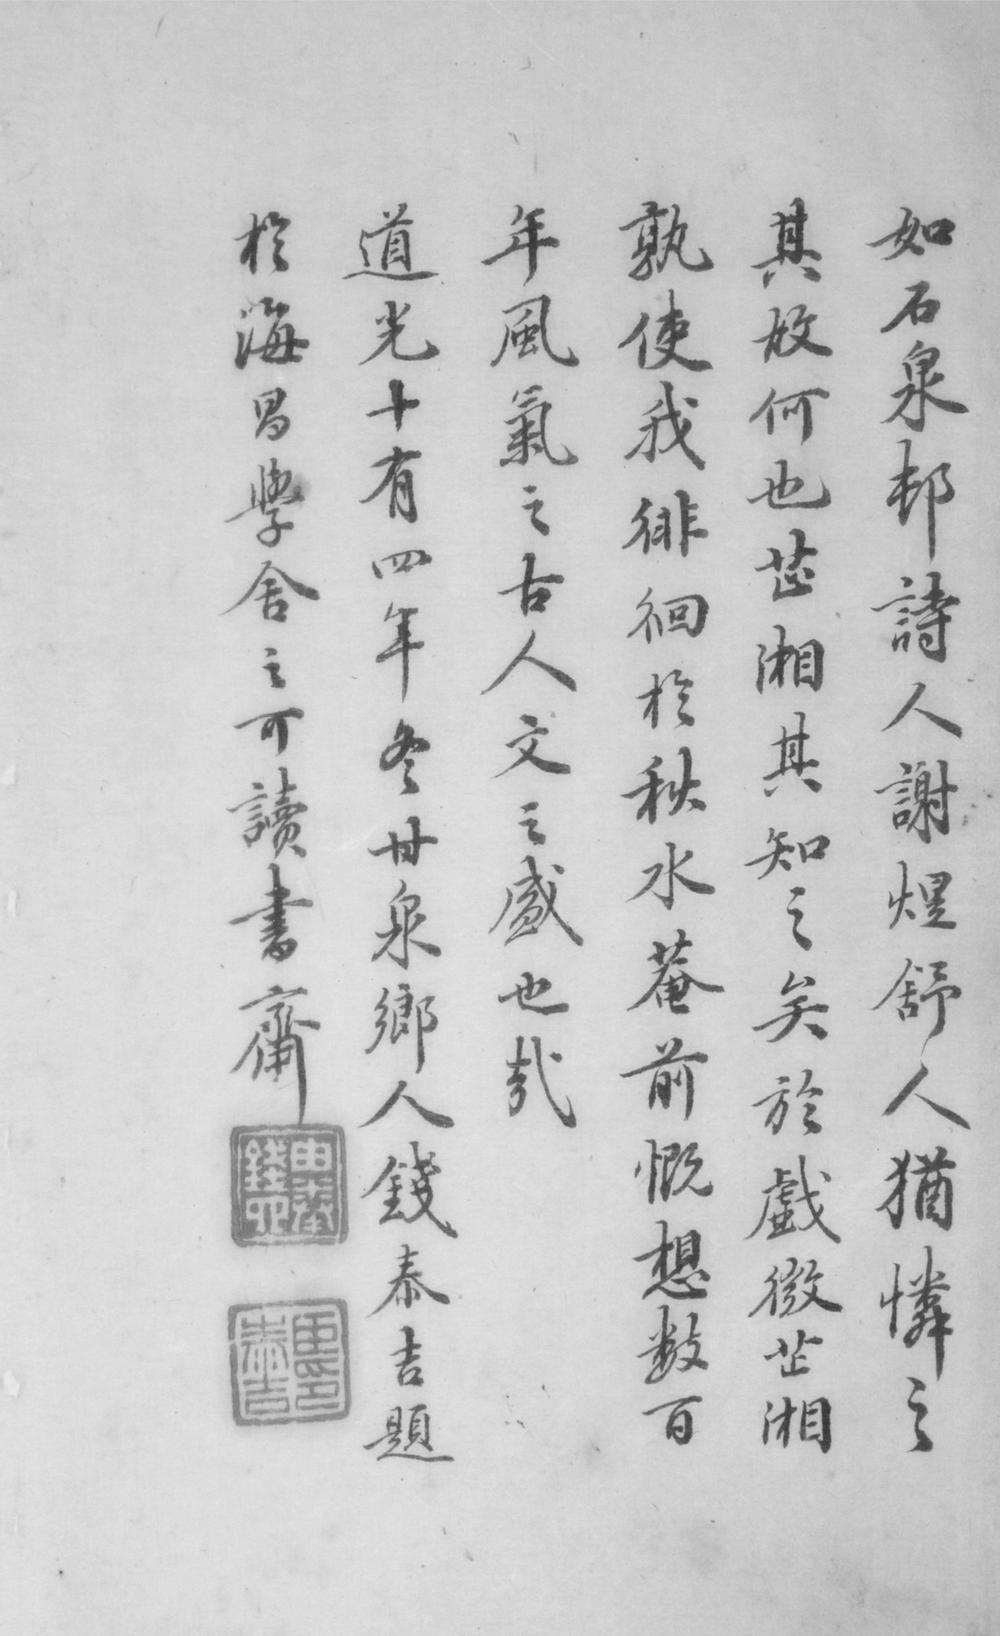 如石泉邨詩人謝煜舒人猶憐之
其故何也芷湘其知之矣於戲微芷湘
孰使我徘徊於秋水菴前慨想數百
年風氣之古人文之盛也哉
道光十有四年冬甘泉鄉人錢泰吉題
於海昌學舍之可讀書齋
臣印泰吉